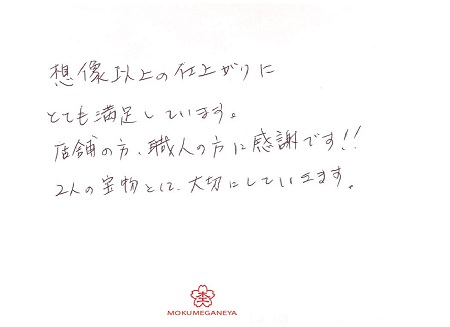 想像以上の仕上がりに
とても満足しています。
店舗の方、職人の方に感謝です!!
2人の宝物として、大切にしていきます。
MOKUMEGANEYA